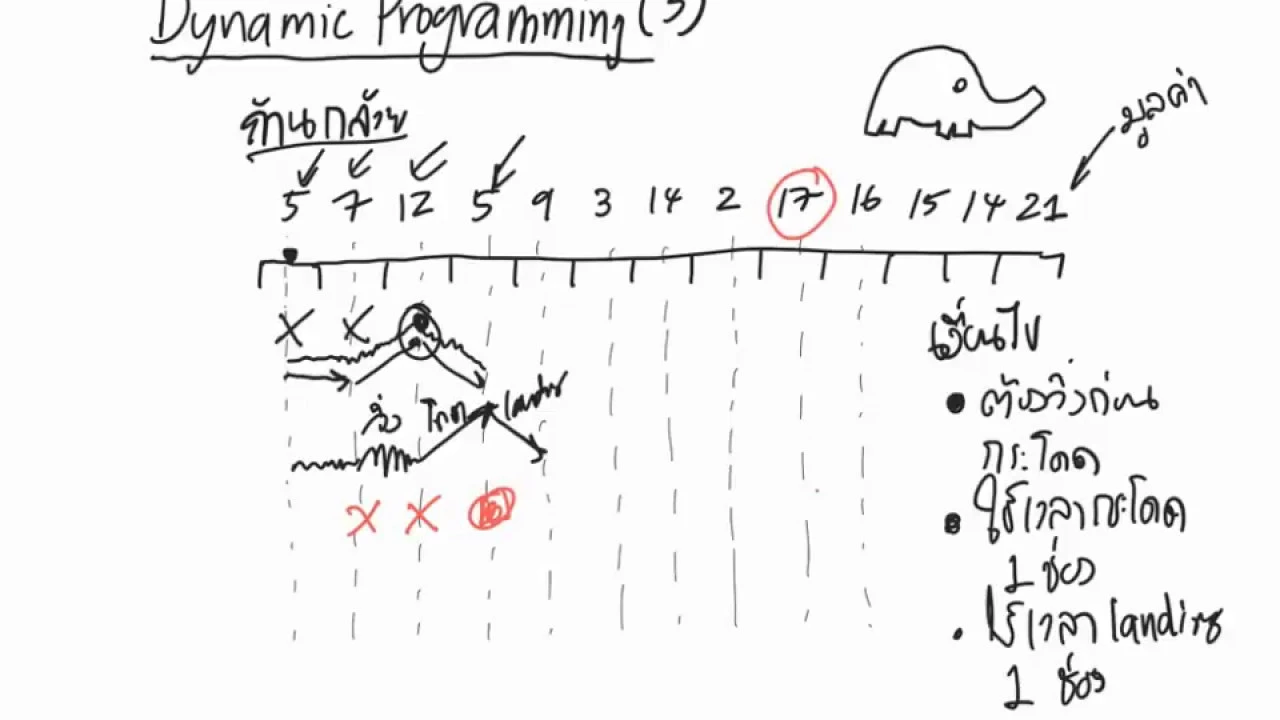 Dynamic Programming (3)
ก้านกล้วย
มูลค่า
5 7 12 5 9 3 14 2 17 16 15 14 21
X X
วิ่ง โดด landing
X X
เงื่อนไข
• ต้องวิ่งก่อน
กระโดด
• ใช้เวลากระโดด
1 ช่อง
• ใช้เวลา landing
1 ช่อง